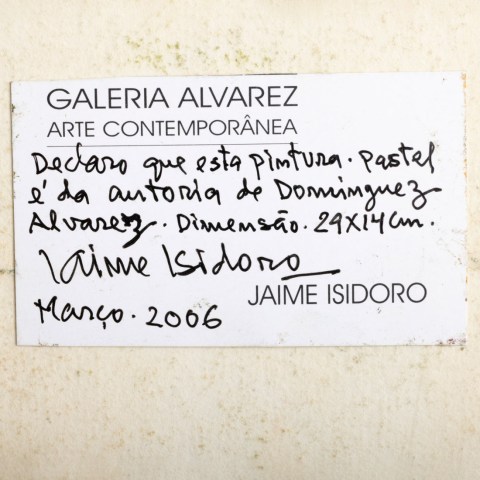 GALERIA ALVAREZ
ARTE CONTEMPORÂNEA
Declaro que esta pintura. pastel
é da autoria de Dominguez
Alvarez. Dimensão. 29X14cm.
Jaime Isidoro
JAIME ISIDORO
Março. 2006